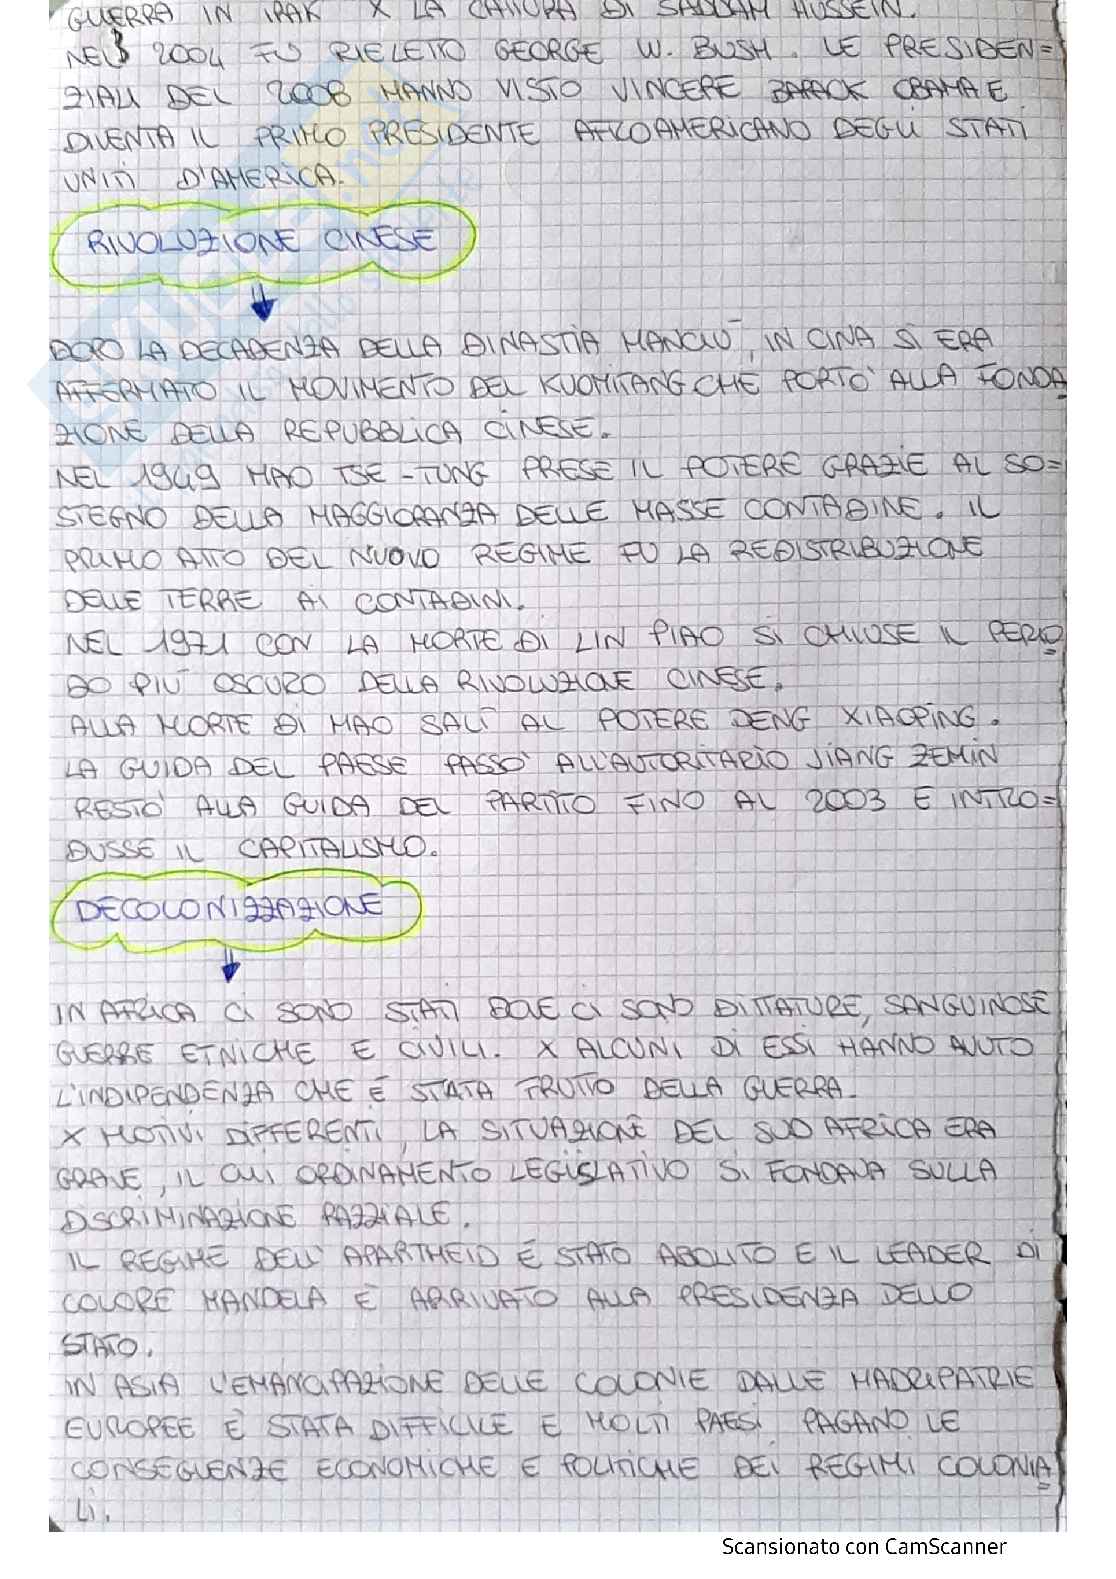 GUERRA IN IRAK X LA CATTURA DI SADDAM HUSSEIN.
NEL 2004 FU RIELETTO GEORGE W. BUSH. LE PRESIDEN=
ZIALI DEL 2008 HANNO VISTO VINCERE BARACK OBAMA E
DIVENTA IL PRIMO PRESIDENTE AFROAMERICANO DEGLI STATI
UNITI D'AMERICA.
RIVOLUZIONE CINESE
DOPO LA DECADENZA DELLA DINASTIA MANCIÙ, IN CINA SI ERA
AFFERMATO IL MOVIMENTO DEL KUOMITANG CHE PORTO' ALLA FONDA
ZIONE DELLA REPUBBLICA CINESE.
NEL 1949 MAO TSE-TUNG PRESE IL POTERE GRAZIE AL SO=
STEGNO DELLA MAGGIORANZA DELLE MASSE CONTADINE. IL
PRIMO ATTO DEL NUOVO REGIME FU LA REDISTRIBUZIONE
DELLE TERRE AI CONTADINI.
NEL 1971 CON LA MORTE DI LIN PIAO SI CHIUSE IL PERIO
DO PIU' OSCURO DELLA RIVOLUZIONE CINESE.
ALLA MORTE DI MAO SALÌ AL POTERE DENG XIAOPING.
LA GUIDA DEL PAESE PASSO' ALL'AUTORITARIO JIANG ZEMIN
RESTO' ALLA GUIDA DEL PARTITO FINO AL 2003 E INTRO=
DUSSE IL CAPITALISMO.
DECOLONIZZAZIONE
IN AFRICA CI SONO STATI DOVE CI SONO DITTATURE, SANGUINOSE
GUERRE ETNICHE E CIVILI. X ALCUNI DI ESSI HANNO AVUTO
L'INDIPENDENZA CHE È STATA FRUTTO DELLA GUERRA.
X MOTIVI DIFFERENTI, LA SITUAZIONE DEL SUD AFRICA ERA
GRAVE, IL CUI ORDINAMENTO LEGISLATIVO SI FONDAVA SULLA
DISCRIMINAZIONE RAZZIALE.
IL REGIME DELL'APARTHEID È STATO ABOLITO E IL LEADER DI
COLORE MANDELA È ARRIVATO ALLA PRESIDENZA DELLO
STATO.
IN ASIA L'EMANCIPAZIONE DELLE COLONIE DALLE MADREPATRIE
EUROPEE È STATA DIFFICILE E MOLTI PAESI PAGANO LE
CONSEGUENZE ECONOMICHE E POLITICHE DEI REGIMI COLONIA
LI.
Scansionato con CamScanner